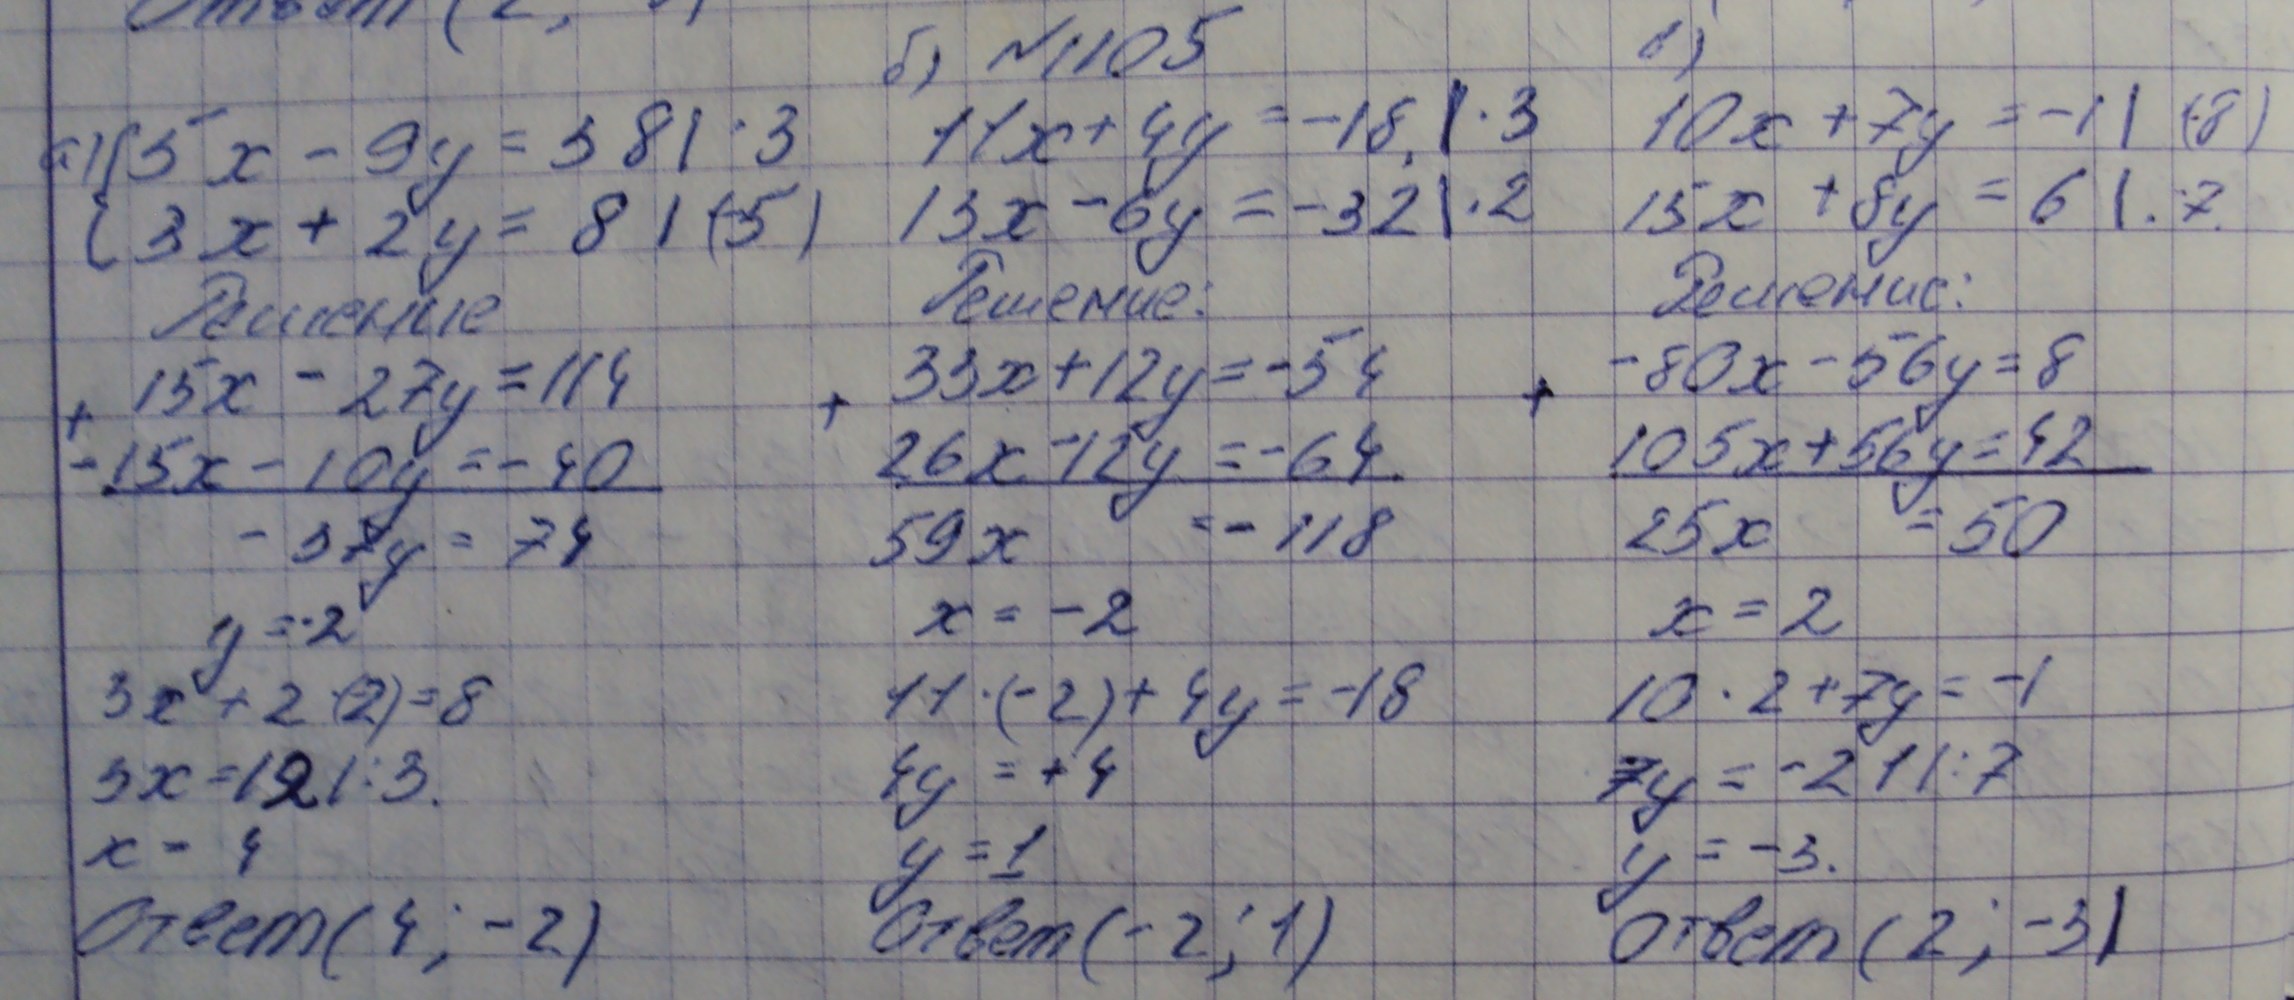 Ответ (2;
б) №1105
в)
а) { 5x - 9y = 38 | · 3
{ 3x + 2y = 8 | (-5)
Решение
+ 15x - 27y = 114
-15x - 10y = -40
-37y = 74
y = -2
3x + 2 · (2) = 8
3x = 12 | : 3.
x = 4
Ответ (4; -2)
11x + 4y = -18. | · 3
13x - 6y = -32 | · 2
Решение:
+ 33x + 12y = -54
26x - 12y = -64.
59x = -118
x = -2
11 · (-2) + 4y = -18
4y = +4
y = 1
Ответ (-2; 1)
10x + 7y = -1 | (-8)
15x + 8y = 6 | · 7.
Решение:
+ -80x - 56y = 8
105x + 56y = 42
25x = 50
x = 2
10 · 2 + 7y = -1
7y = -21 | : 7
y = -3.
Ответ (2; -3)